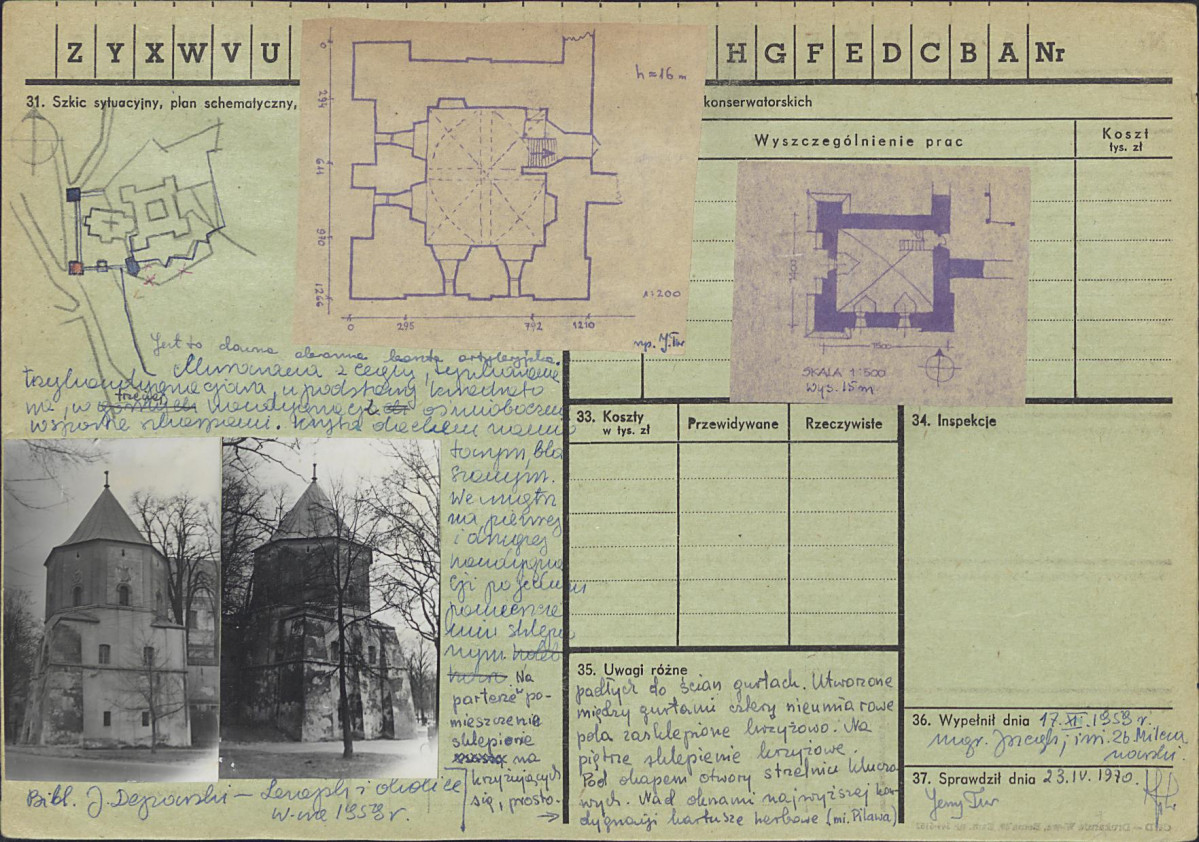 Z Y X W V U
H G F E D C B A Nr
31. Szkic sytuacyjny, plan schematyczny,
konserwatorskich
Wyszczególnienie prac
Koszt
tys. zł
h = 16 m
0
294
641
970
1266
0 295 792 1210
1:200
np. J.Tur
SKALA 1:500
Wys. 15 m
Jest to dawna obronna baszta artyleryjska.
Murowana z cegły, tynkowana
trzykondygnacjowa, u podstawy kwadrato
wa, w trzeciej kondygnacji ośmioboczna
wsparta szkarpami. Kryta dachem namio
towym, bla
szanym.
Wewnątrz
na pierwszej
i drugiej
kondygna
cji po jednym
pomieszcze
niu sklepio
nym
Na
parterze po-
mieszczenie
sklepione
na
krzyżujących
się, prosto-
33. Koszty
w tys. zł
Przewidywane
Rzeczywiste
34. Inspekcje
35. Uwagi różne
padłych do ścian gurtach. Utworzone
między gurtami cztery nieumiarowe
pola zasklepione krzyżowo. Na
piętrze sklepienie krzyżowe.
Pod okapem otwory strzelnic klucze
wych. Nad oknami najwyższej kon
dygnacji kartusze herbowe (mi. Pilawa)
36. Wypełnił dnia 17.XII.1959 r.
mgr. inż.
37. Sprawdził dnia 23.IV.1970.
Jerzy Tur
Bibl. J. Dejrowski – Leżajsk i okolice
W-wa 1959 r.